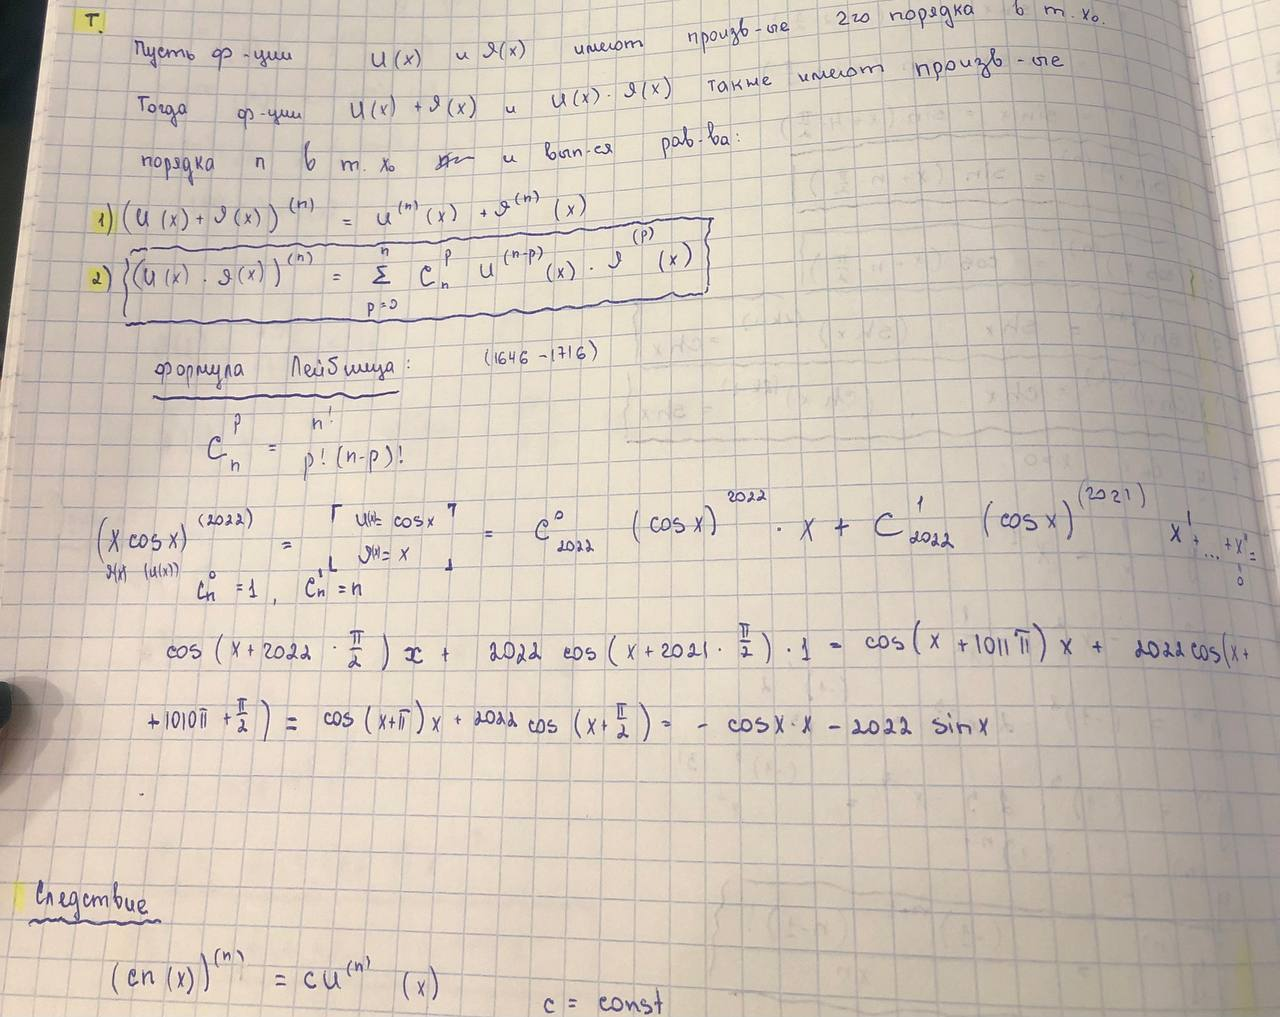 Т.
Пусть ф-ции U(x) и V(x) имеют произв-ые 2го порядка в т. x₀.
Тогда ф-ции U(x) + V(x) и U(x) · V(x) также имеют произв-ые
порядка n в т. x₀ и вып-ся рав-ва:
1) (U(x) + V(x))⁽ⁿ⁾ = U⁽ⁿ⁾(x) + V⁽ⁿ⁾(x)
2) (U(x) · V(x))⁽ⁿ⁾ = Σ_{p=0}^{n} C_n^p U^{(n-p)}(x) · V^{(p)}(x)
формула Лейбница: (1646 - 1716)
C_n^p = n! / p! (n-p)!
(x cosx)^{(2022)} = ⌈ U(x) = cosx ⌉ = C_{2022}^0 (cosx)^{2022} · x + C_{2022}^1 (cosx)^{(2021)} x' + ... + x'' =
V(x) (U(x)) ⌊ V(x) = x ⌋ 0
C_n^0 = 1, C_n^1 = n
cos(x + 2022 · π/2) x + 2022 cos(x + 2021 · π/2) · 1 = cos(x + 1011π) x + 2022 cos(x +
+ 1010π + π/2) = cos(x+π) x + 2022 cos(x + π/2) = - cosx · x - 2022 sinx
Следствие
(cn(x))⁽ⁿ⁾ = cU⁽ⁿ⁾(x) c = const